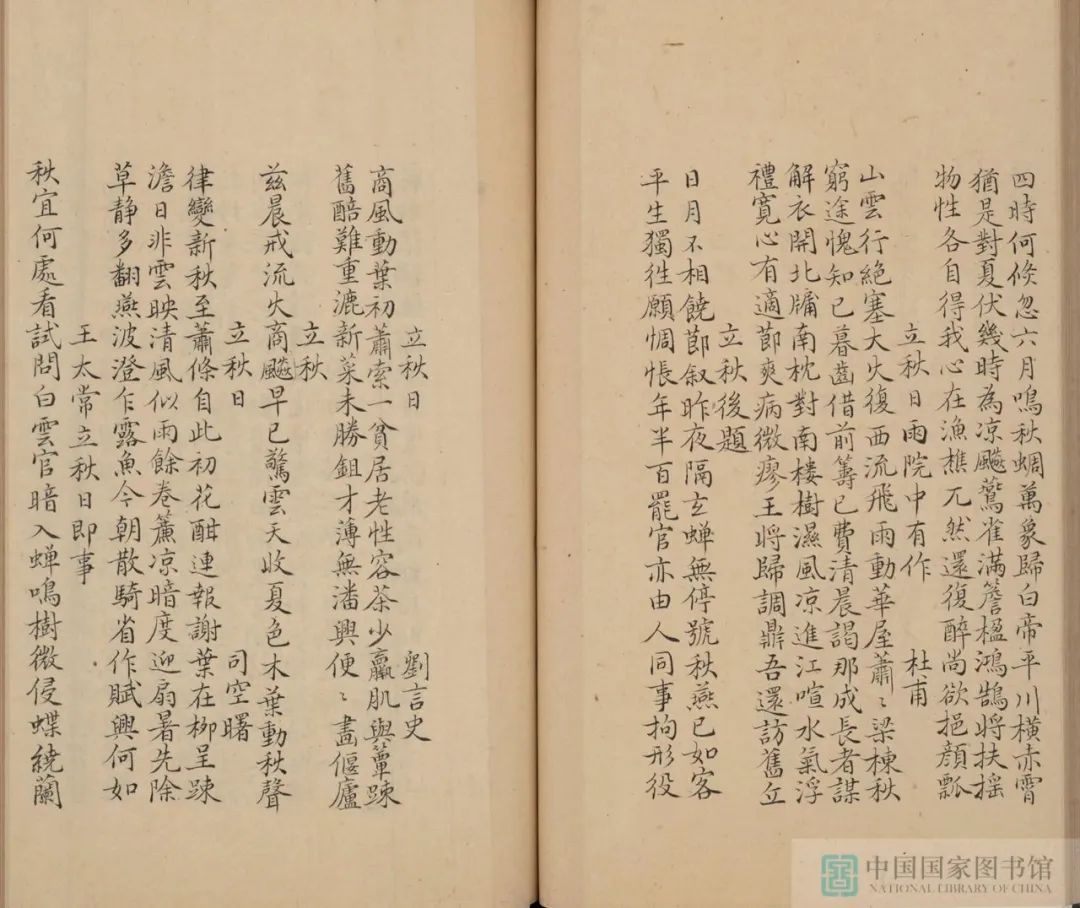 四時何倐忽六月鳴秋蜩萬象歸白帝平川橫赤霄
猶是對夏伏幾時為凉飈鷰雀滿簷楹鴻鵠將扶摇
物性各自得我心在漁樵兀然還復醉尚欲挹顔瓢
立秋日雨院中有作 杜甫
山雲行絶塞大火復西流飛雨動華屋蕭〻梁棟秋
窮途愧知已暮齒借前籌已費清晨謁那成長者謀
解衣開北牖南枕對南楼樹濕風凉進江喧水氣浮
禮寛心有適莭爽病微瘳王將歸調鼎吾還訪舊丘
立秋後題
日月不相饒莭叙昨夜隔玄蟬無停號秋燕已如客
平生獨徃願惆悵年半百罷官亦由人同事拘形役
立秋日 劉言史
商風動葉初蕭索一貧居老性容茶少羸肌與簟踈
舊醅難重漉新菜未勝鉏才薄無潘興便〻晝偃廬
立秋
兹晨戒流火商飈早已驚雲天收夏色木葉動秋聲
立秋日 司空曙
律變新秋至蕭條自此初花酣連報謝葉在柳呈踈
澹日非雲映清風似雨餘卷簾凉暗度迎扇暑先除
草静多翻燕波澄乍露魚今朝散騎省作賦興何如
王太常立秋日即事
秋宜何處看試問白雲官暗入蟬鳴樹微侵蝶繞蘭
中国国家图书馆
NATIONAL LIBRARY OF CHINA